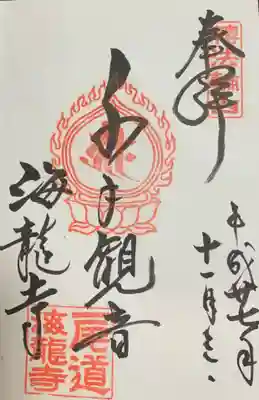 奉拝
平成廿七年
十一月
千手観音
海龍寺
尾道
海龍寺